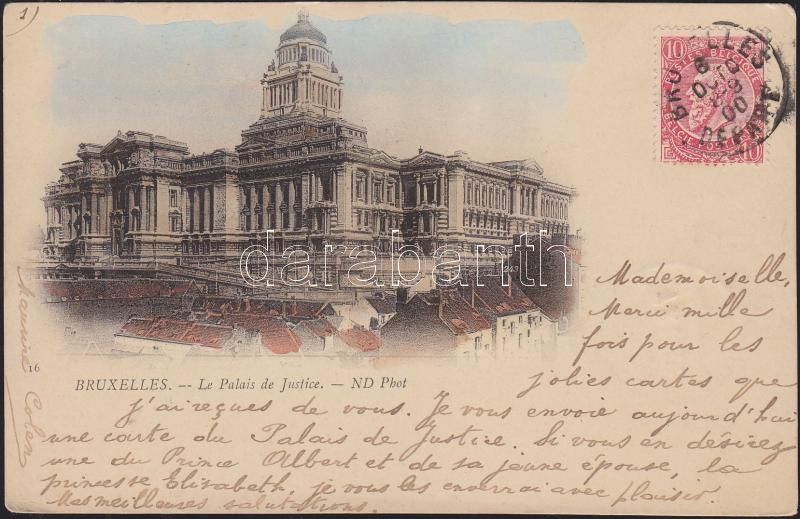 1)
10
POSTES BELGIQUE
BRUXELLES
DEPART
darabanth
243
16
BRUXELLES. -- Le Palais de Justice. — ND Phot
Mademoiselle,
Merci mille
fois pour les
jolies cartes que
j'ai reçues de vous. Je vous envoie aujourd'hui
une carte du Palais de Justice. Si vous en désirez
une du Prince Albert et de sa jeune épouse, la
princesse Elisabeth je vous les enverrai avec plaisir.
Mes meilleures salutations.
Colen